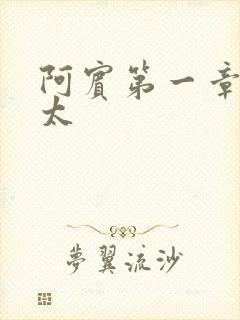 阿賓第一章
太
夢翼流沙